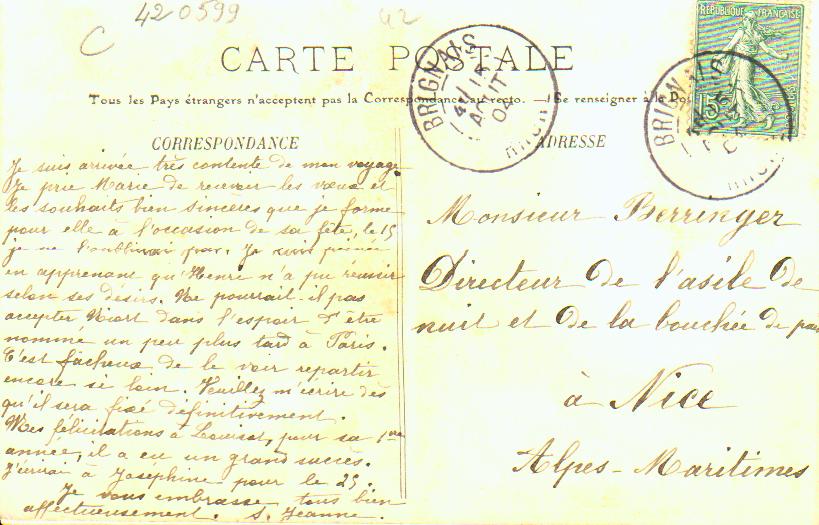 420599
42
C
CARTE POSTALE
RÉPUBLIQUE FRANÇAISE
15
BRIGNAIS
AOUT
04
RHONE
BRIGNAIS
RHONE
Tous les Pays étrangers n'acceptent pas la Correspondance au recto. — Se renseigner à la Pos
CORRESPONDANCE
Je suis arrivée très contente de mon voyage.
Je prie Marie de recevoir les vœux et
les souhaits bien sincères que je forme
pour elle à l'occasion de sa fête, le 15
je ne l'oublierai pas. Je suis peinée
en apprenant qu'Henri n'a pu réussir
selon ses désirs. Ne pourrait-il pas
accepter Niort dans l'espoir d'être
nommé un peu plus tard à Paris.
C'est fâcheux de le voir repartir
encore si loin. Veuillez m'écrire dès
qu'il sera fixé définitivement.
Mes félicitations à Louisot, pour sa 1ère
année, il a eu un grand succès.
J'écrirai à Joséphine pour le 25.
Je vous embrasse tous bien
affectueusement. S. Jeanne.
ADRESSE
Monsieur Berringer
Directeur de l'asile de
nuit et de la bouchée de pain
à Nice
Alpes-Maritimes